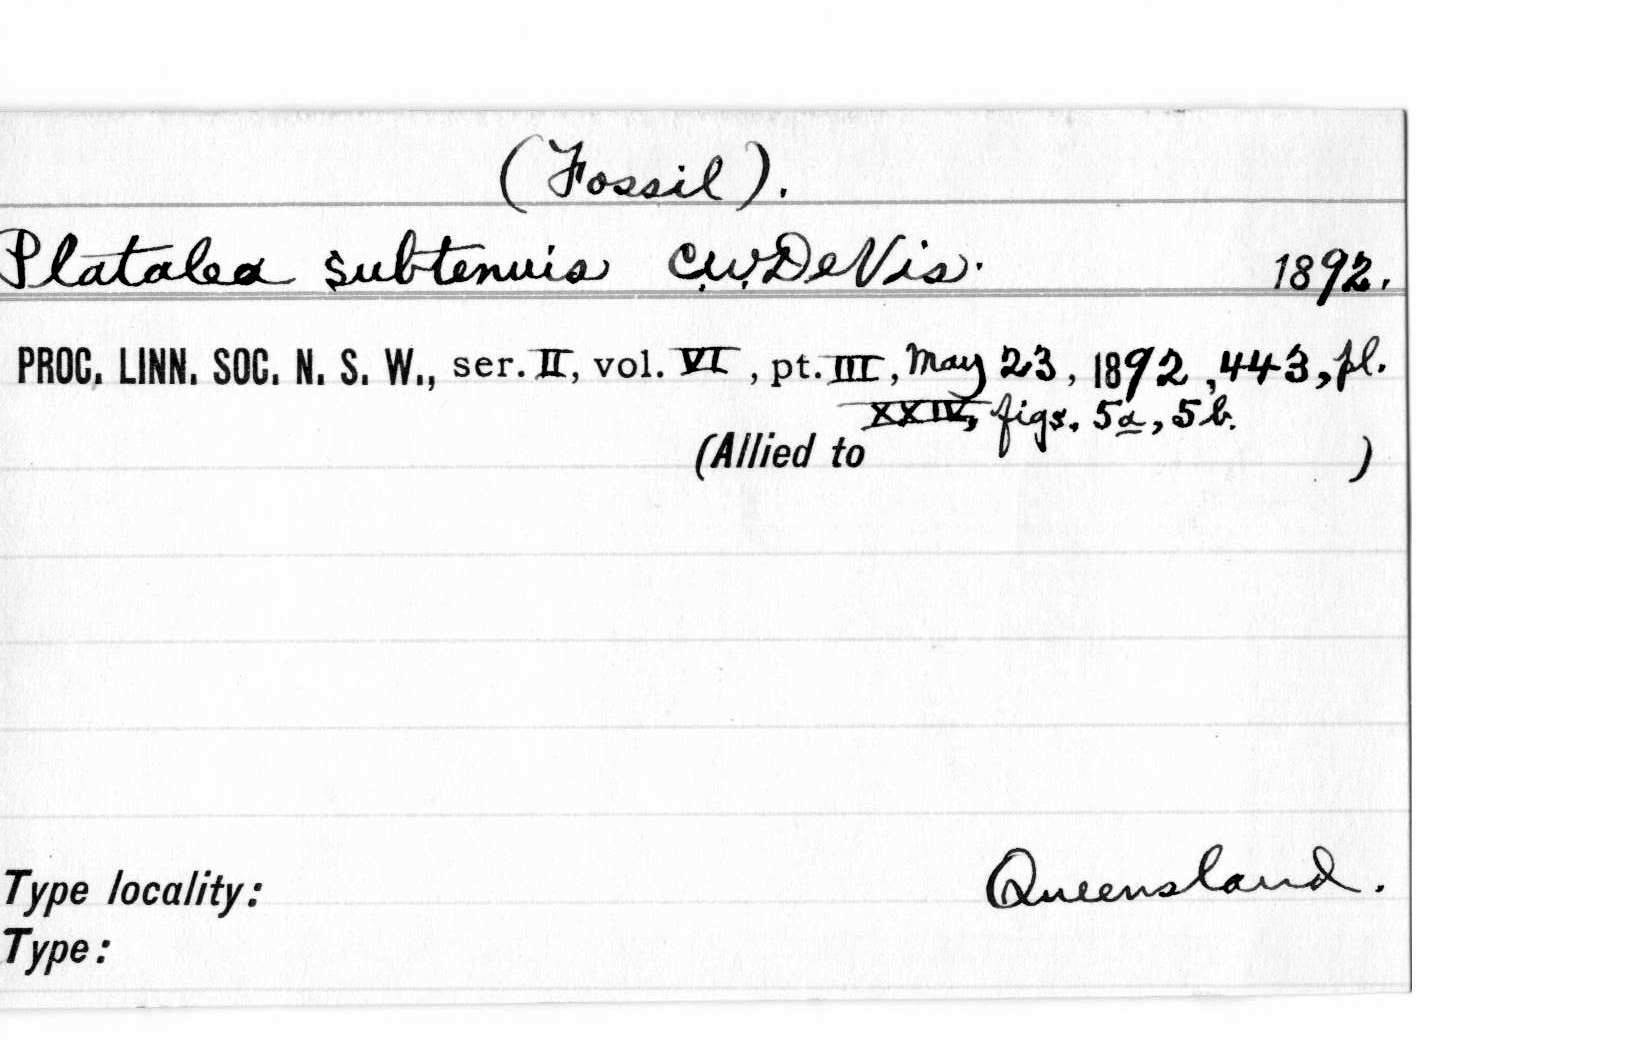 (Fossil).
Platalea subtenuis C.W.DeVis. 1892.
PROC. LINN. SOC. N. S. W., ser. II, vol. VI, pt. III, May 23, 1892, 443, pl.
XXIV, figs. 5a, 5b.
(Allied to )
Type locality: Queensland.
Type: